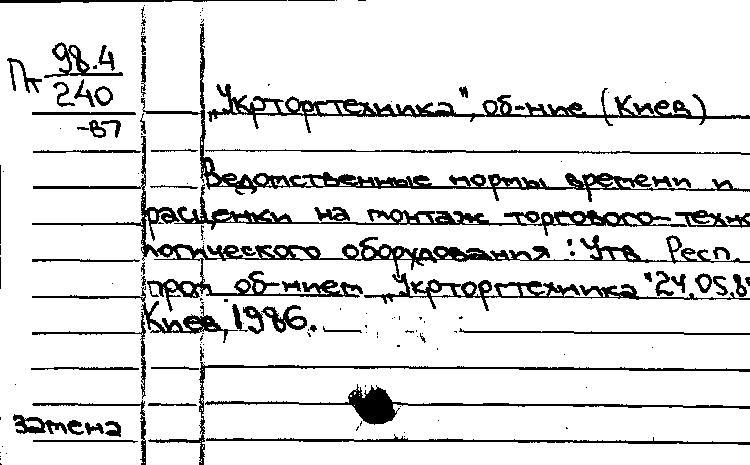 Пт 98.4
240
-87
„Укрторгтехника", об-ние (Киев)
Ведомственные нормы времени и
расценки на монтаж торгового-техно
логического оборудования : Утв. Респ.
пром об-нием „Укрторгтехника" 24.05.8
Киев, 1986.
замена